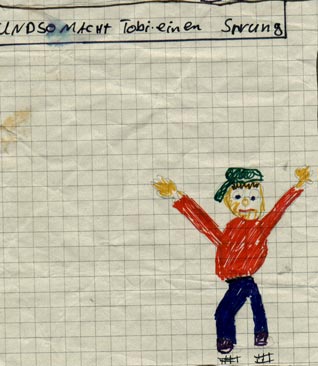 UNDSO MACHT Tobi einen Sprung